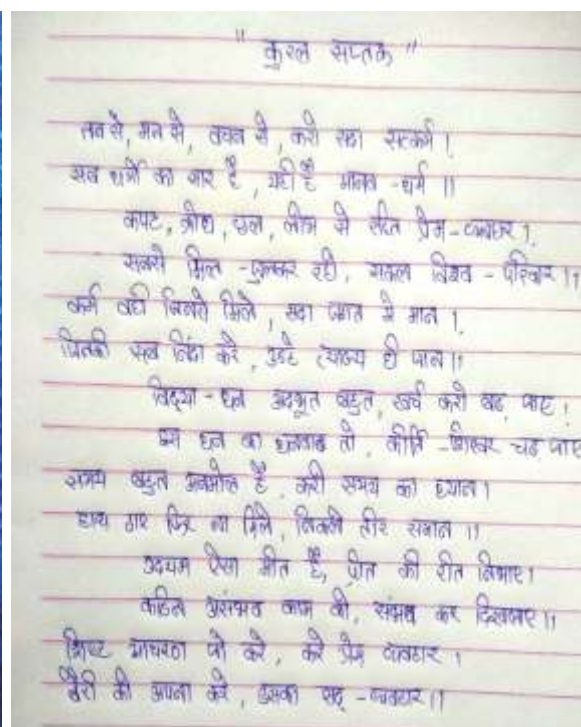 " कुरल सप्तक "
तन से, मन से, वचन से, करो सदा सत्कर्म ।
सब धर्मों का सार है, यही है मानव - धर्म ।।
कपट, क्रोध, छल, लोभ से रहित प्रेम - व्यवहार ।
सबसे मिल - जुलकर रहो, सकल विश्व - परिवार ।।
कर्म वही जिनसे मिले, सदा जगत में मान ।
जिनकी सब निंदा करे, उन्हें त्याज्य ही जान ।।
विद्या - धन अद्भूत बहुत, खर्च करो बढ़ जाए ।
इस धन का धनवान तो, कीर्ति - शिखर चढ़ जाए
समय बहुत अनमोल है, करो समय का ध्यान ।
हाथ फिर ना मिले, निकले तीर समान ।।
उद्यम ऐसा मीत है, प्रीत की रीत निभाए ।
कठिन असंभव काम को, संभव कर दिखलाए ।।
शिष्ट आचरण जो करे, करे प्रेम व्यवहार ।
बैरी को अपना करे, उसका सद् - व्यवहार ।।